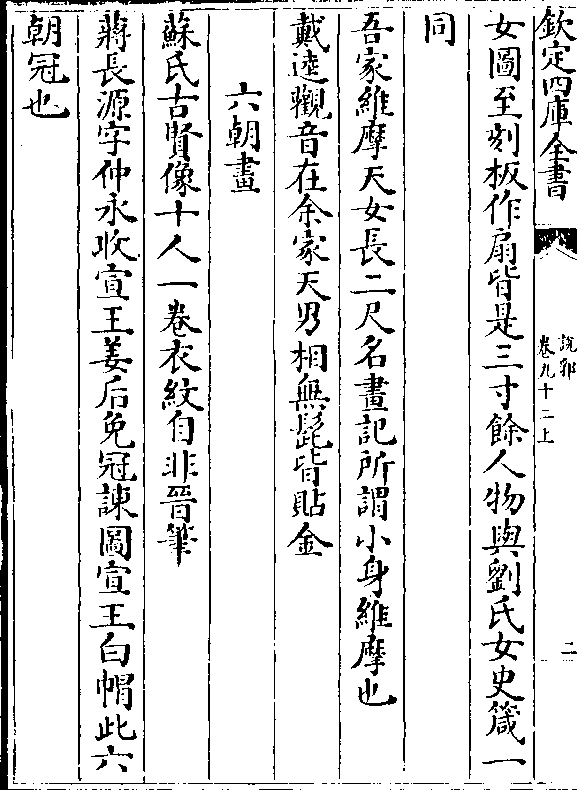 欽定四庫全書
說郛
卷九十二上
二
女圖至刻板作扇皆是三寸餘人物與劉氏女史箴一
同
吾家維摩天女長二尺名畫記所謂小身維摩也
戴逵觀音在余家天男相無髭皆貼金
六朝畫
蘇氏古賢像十人一卷衣紋自非晉筆
蔣長源字仲永收宣王姜后免冠諫圖宣王白帽此六
朝冠也